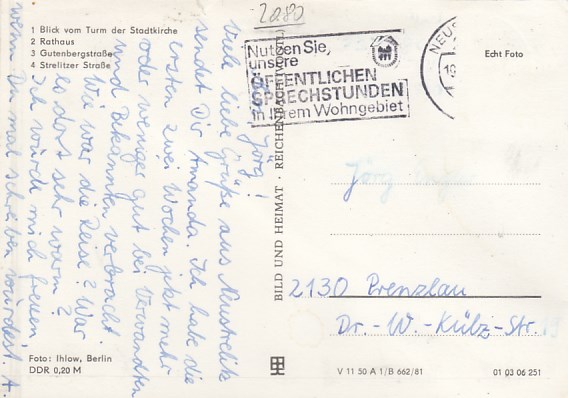 2080
1 Blick vom Turm der Stadtkirche
2 Rathaus
3 Gutenbergstraße
4 Strelitzer Straße
Nutzen Sie,
unsere
ÖFFENTLICHEN
SPRECHSTUNDEN
in Ihrem Wohngebiet
NEUS
10
Echt Foto
Jörg!
Viele liebe Grüße aus Neustrelitz
sendet Dir Amanda. Ich habe die
ersten zwei Wochen jetzt mehr
oder weniger gut bei Verwandten
und Bekannten verbracht.
Wie war die Reise? War
es dort sehr warm?
Ich würde mich freuen
wenn Du mal schreiben würdest. A.
BILD UND HEIMAT · REICHENBACH
Jörg
2130 Prenzlau
Dr.-W.-Külz-Str.
Foto: Ihlow, Berlin
DDR 0,20 M
V 11 50 A 1/B 662/81
01 03 06 251